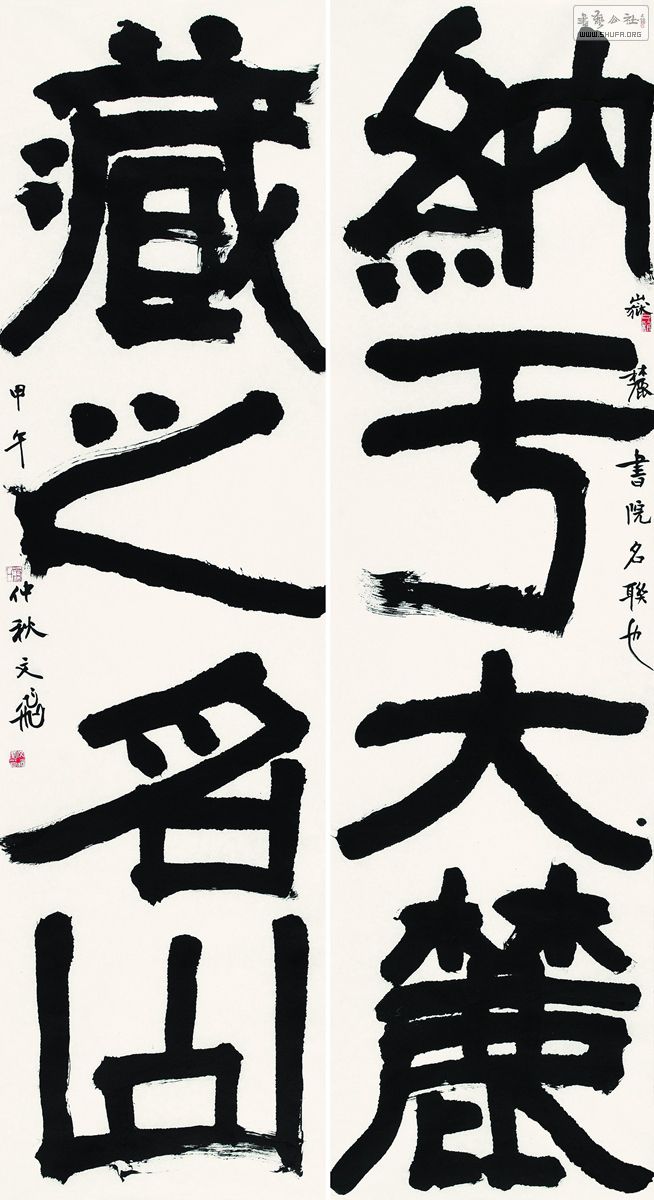 書藝公社
WWW.SHUFA.ORG
納于大麓
嶽麓書院名聯也
藏之名山
甲午仲秋文飛